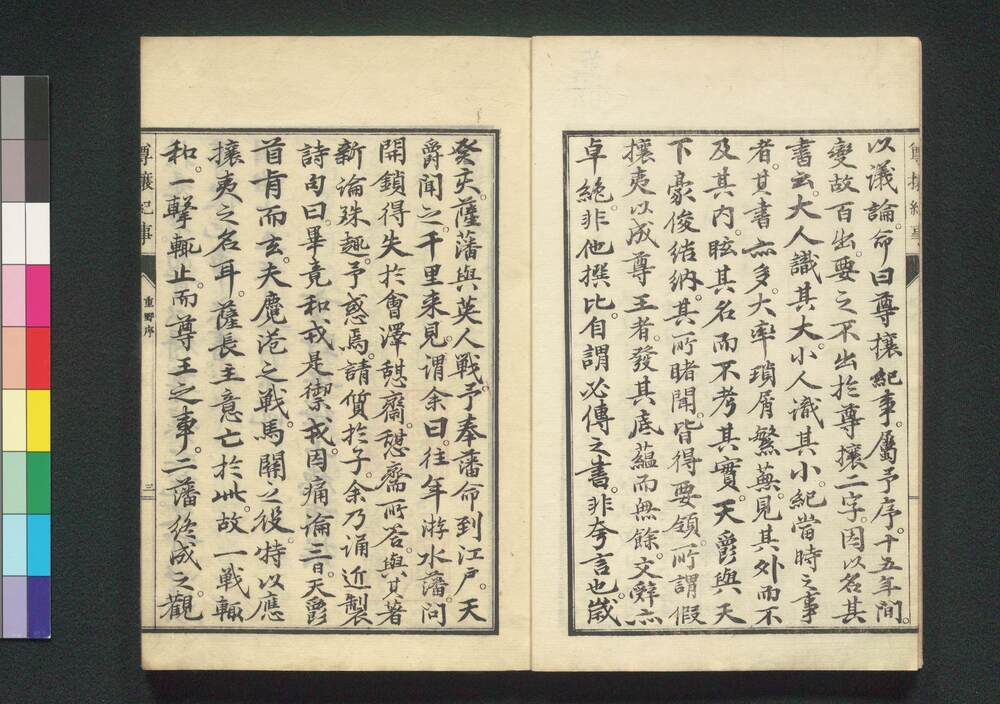 以議論。命曰尊攘紀事。屬予序。十五年間。
變故百出。要之不出於尊攘二字。因以名其
書云。大人識其大。小人識其小。紀當時之事
者。其書亦多。大率瑣屑繁蕪。見其外而不
及其内。眩其名而不考其實。天爵與天
下豪俊結納。其所睹聞。皆得要領。所謂假
攘夷以成尊王者。發其底蘊而無餘。文辭亦
卓絶。非他撰比。自謂必傳之書。非夸言也。歲
癸亥。薩藩與英人戰。予奉藩命到江戶。天
爵聞之。千里来見。謂余曰。往年游水藩。問
開鎖得失於會澤憩齋。憩齋所答。與其著
新論殊趣。予惑焉。請質於子。余乃誦近製
詩句曰。畢竟和戎是禦戎。因痛論三日。天爵
首肯而去。夫麑港之戰。馬關之役。特以應
攘夷之名耳。薩長主意亡於此。故一戰輙
和。一擊輙止。而尊王之事。二藩終成之。觀
尊攘紀事
重野序
三